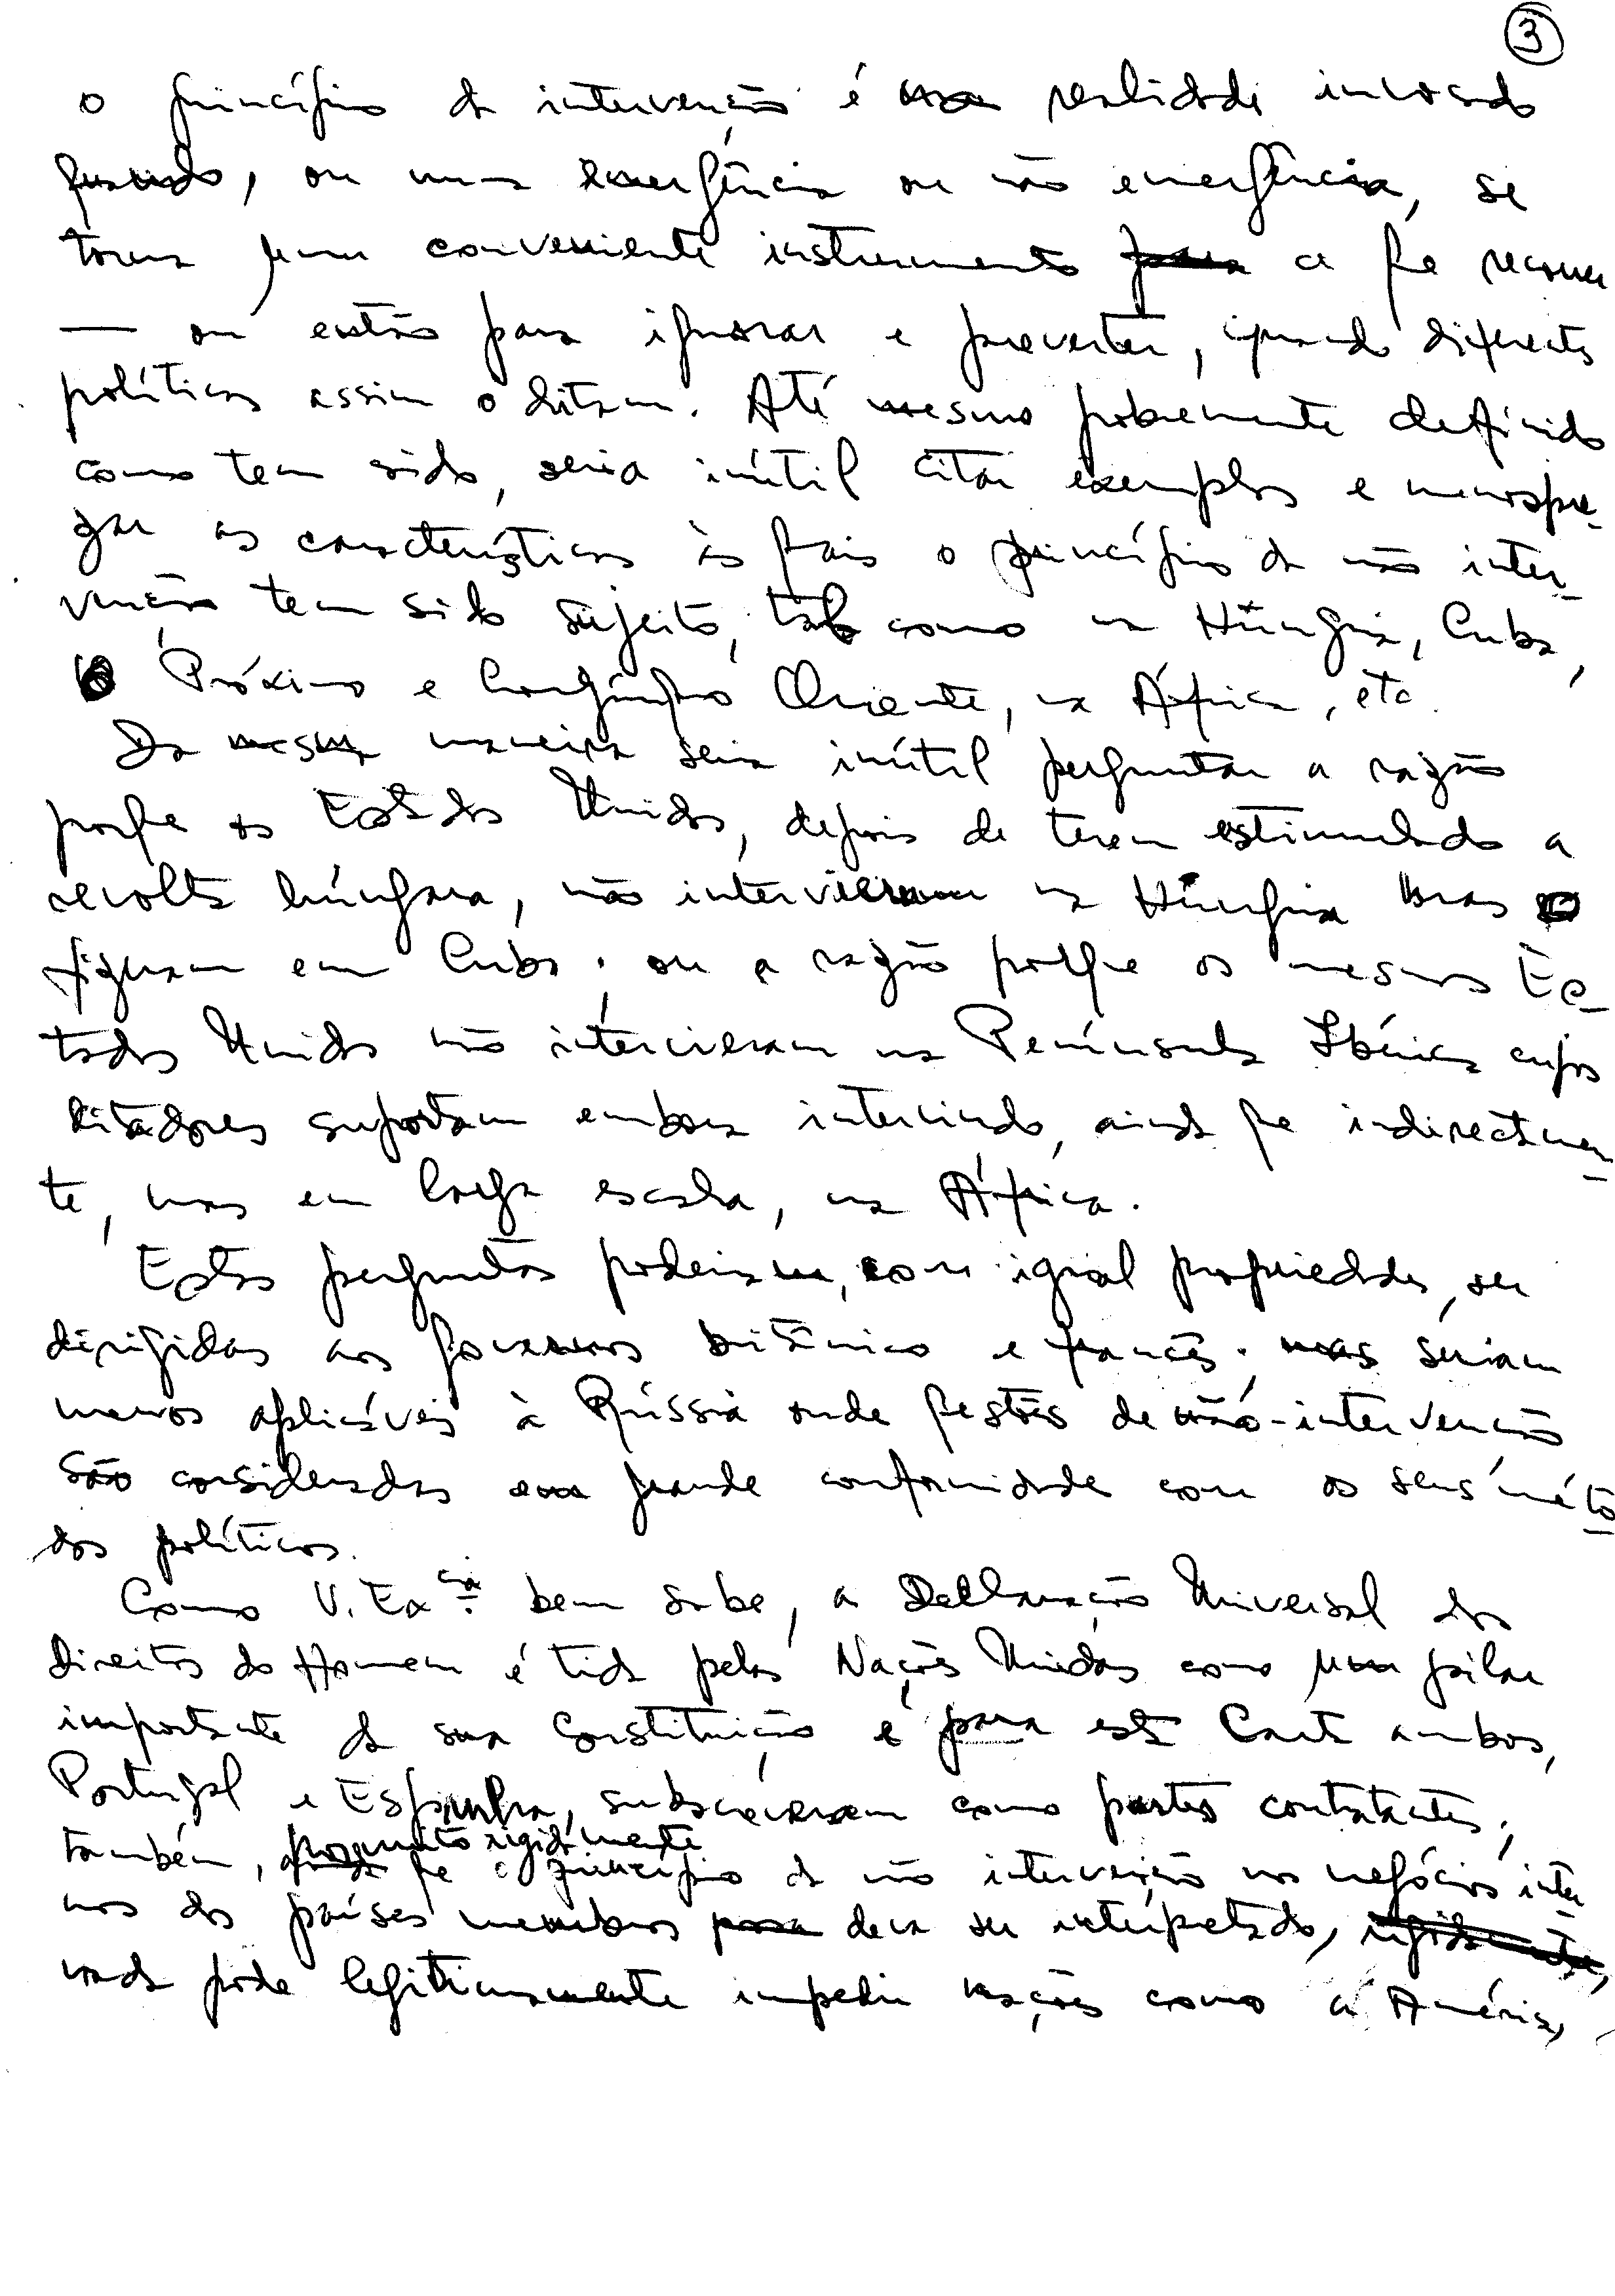 3
o princípio da intervenção é na realidade invocado
quando, ou numa emergência ou não emergência, se
torna num conveniente instrumento a que recorrer
— ou então para ignorar e preverter, quando diferentes
políticas assim o ditam. Até mesmo pobremente definido
como tem sido, seria inútil citar exemplos e menospre-
zar as características às quais o princípio da não inter-
venção tem sido sujeito, tal como na Húngria, Cuba,
Próximo e Longínquo Oriente, na África, etc.
Da mesma maneira seria inútil perguntar a razão
porque os Estados Unidos, depois de terem estimulado a
revolta húngara, não intervieram na Húngria mas
fizeram em Cuba; ou a razão porque os mesmos Es-
tados Unidos não intervieram na Península Ibérica cujos
ditadores suportam embora intervindo, ainda que indirectamen-
te, mas em larga escala, na África.
Estas perguntas poderiam, com igual propriedade, ser
dirigidas aos governos britânico e francês; mas seriam
menos aplicáveis à Rússia onde questões de não-intervenção
são consideradas em grande conformidade com os seus méto-
dos políticos.
Como V. Exª. bem sabe, a Declaração Universal dos
Direitos do Homem é tida pelas Nações Unidas como um pilar
importante da sua Constituição e para esta Carta ambos,
Portugal e Espanha, subscreveram como partes contratantes;
por muito rigidamente
também, que o princípio da não intervenção nos negócios inter-
nos dos países membros deva ser interpretado,
nada pode legitimamente impedir nações como a América,